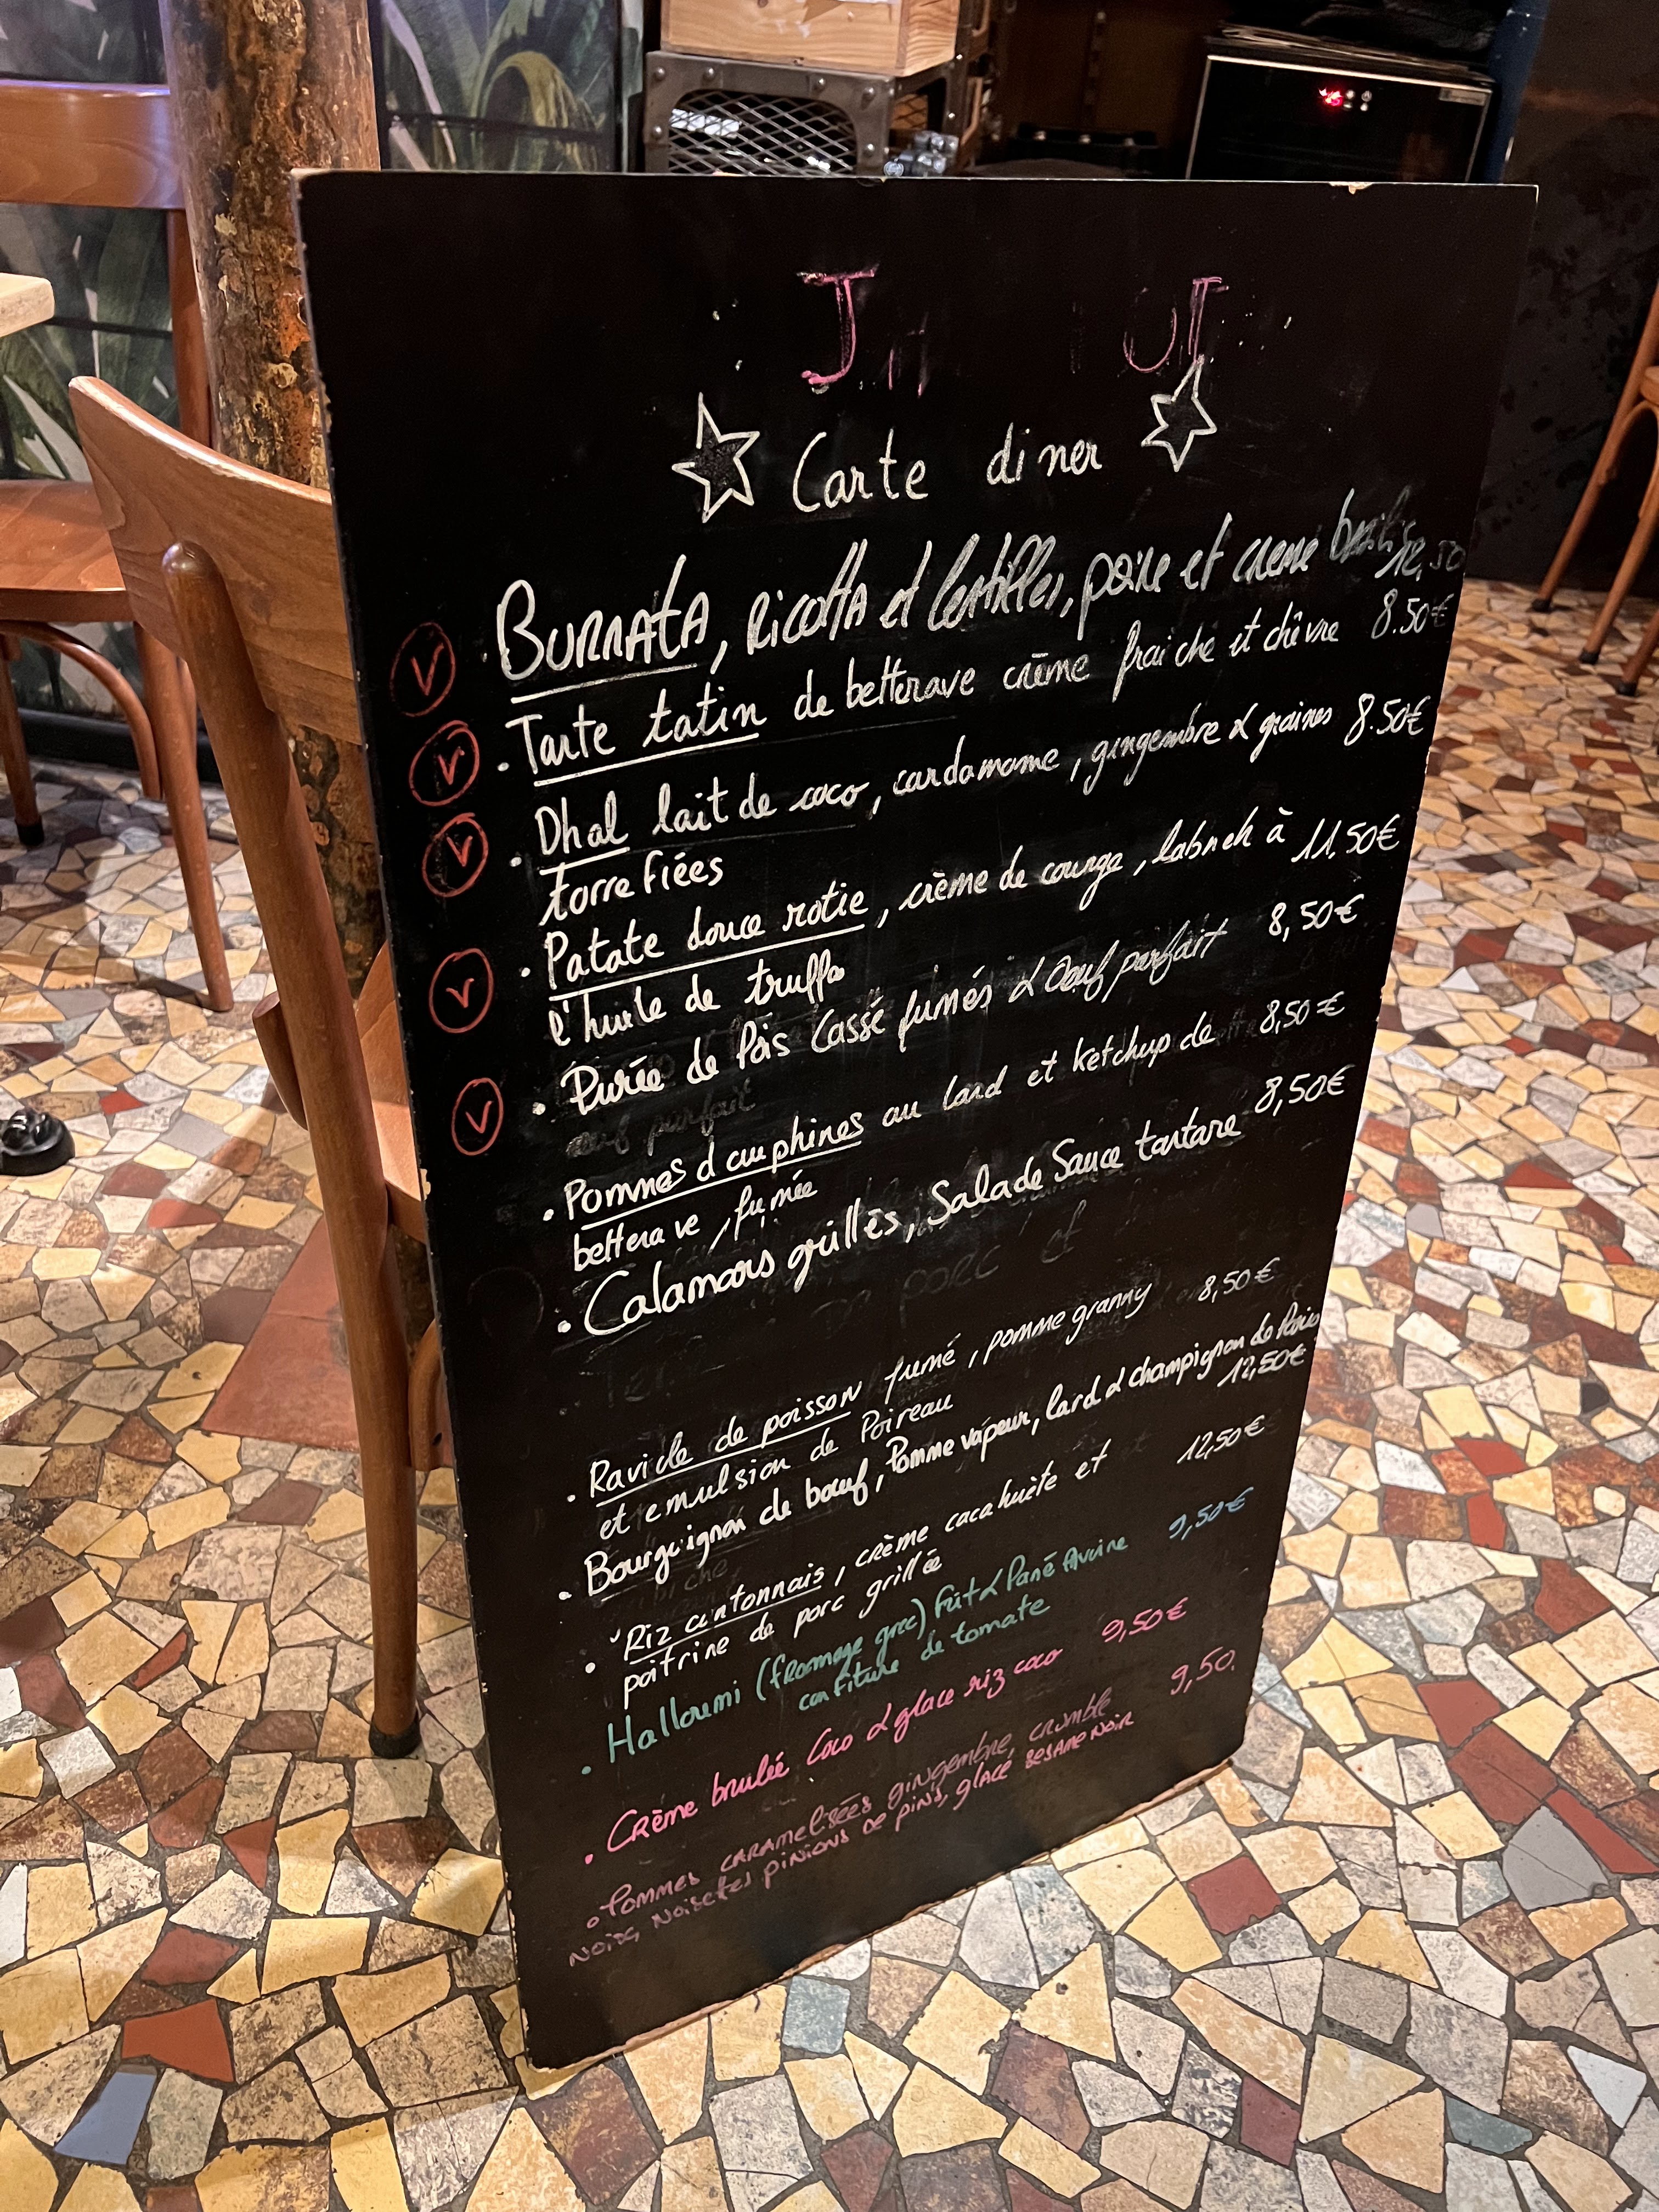 Carte diner
V
BURRATA, Ricotta et lentilles, poire et creme basilic
12,50
V
Tarte tatin de betterave crème fraiche et chêvre 8.50€
V
Dhal lait de coco, cardamome, gingembre & graines 8.50€
torrefiées
V
Patate douce rotie, crème de courge, labneh à 11,50€
l'huile de truffe
V
Purée de Pois Cassé fumés & Oeuf parfait 8,50€
oeuf parfait
Pommes dauphines au lard et ketchup de 8,50€
betterave fumée
Calamars grillés, Salade Sauce tartare 8,50€
porc et
Raviole de poisson fumé, pomme granny 8,50€
et emulsion de Poireau
Bourguignon de boeuf, Pomme vapeur, lard & champignon de Paris
12,50€
Riz cantonnais, crème cacahuète et 12,50€
poitrine de porc grillée
Halloumi (fromage grec) frit & Pané Avoine 9,50€
confiture de tomate
Crème brulée Coco & glace riz coco 9,50€
Pommes caramelisées gingembre crumble 9,50.
Noix, Noisettes pinions de pins, glace sesame noir